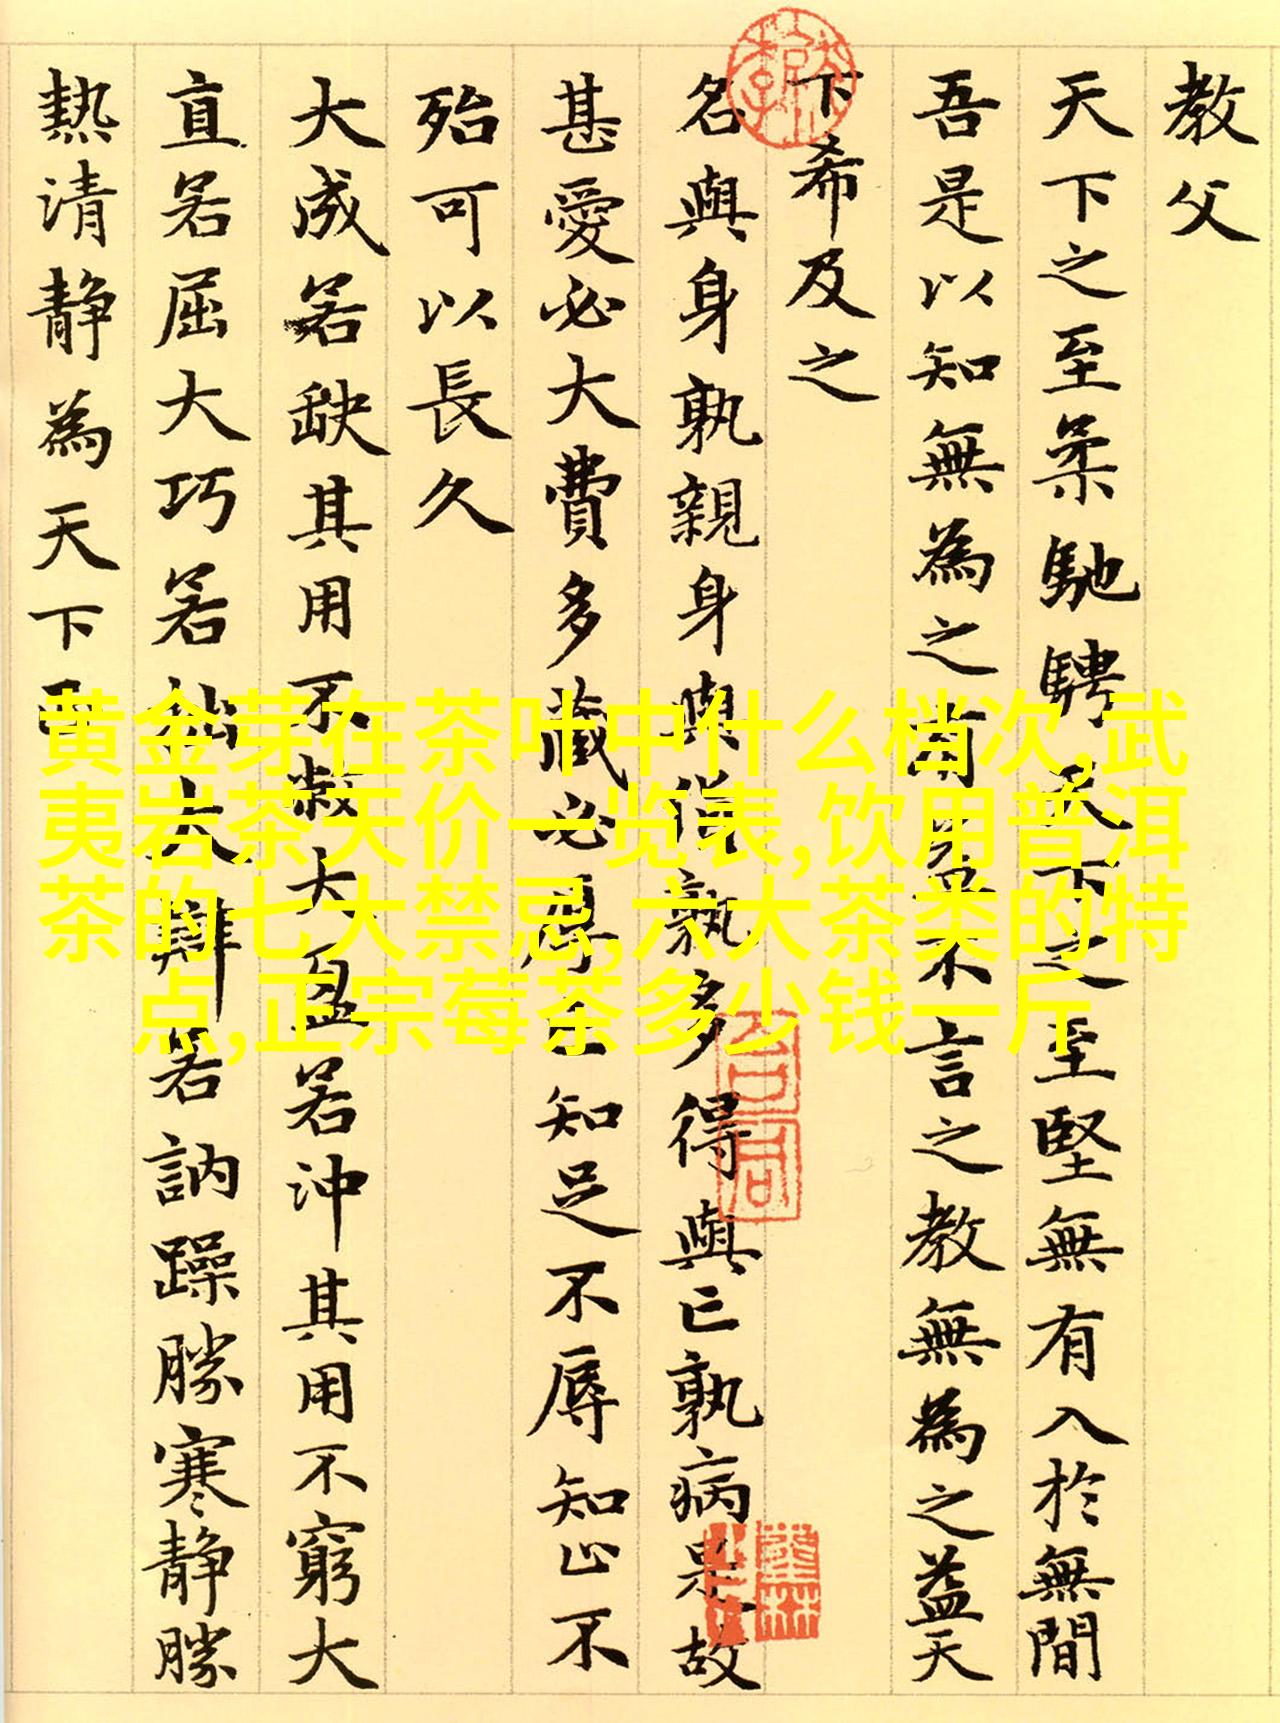 教父
天下之至柔馳騁天下之至堅無有入於無間
吾是以知無為之有益不言之教無為之益天
下希及之
名與身孰親身與貨孰多得與亡孰病是故
甚愛必大費多藏必厚亡知足不辱知止不
殆可以長久
大成若缺其用不敝大盈若沖其用不窮大
直若屈大巧若拙大辯若訥躁勝寒静勝
熱清静為天下正
黄金芽在茶叶中什么档次,武
夷岩茶天价一览表,饮用普洱
茶的七大禁忌,六大茶类的特
点,正宗莓茶多少钱一斤